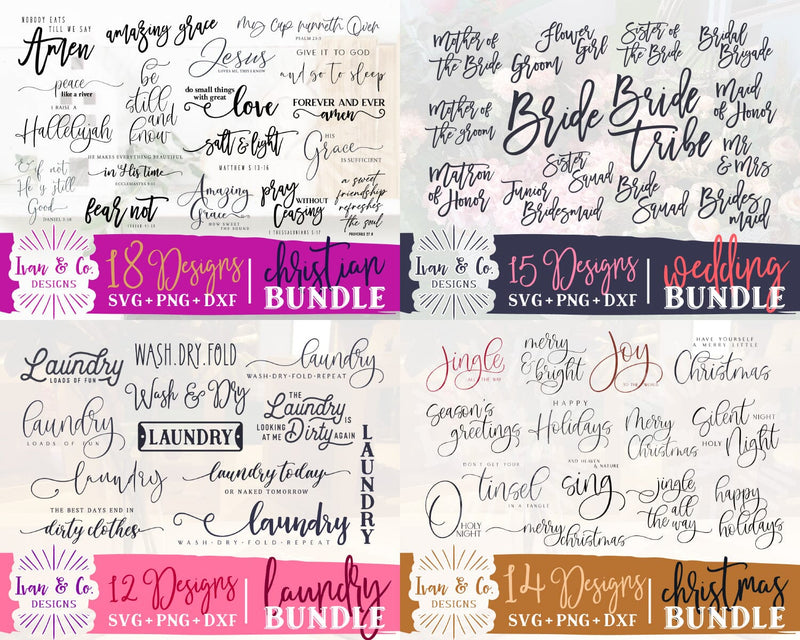 NOBODY EATS
TILL WE SAY
Amen
amazing grace
My Cup runneth Over
PSALM 23:5
Jesus
LOVES ME, THIS I KNOW
GIVE IT TO GOD
and go to sleep
peace
like a river
be
still
and
know
do small things
with great
love
FOREVER AND EVER
amen
I RAISE A
Hallelujah
salt & light
MATTHEW 5:13-16
HIS
Grace
IS SUFFICIENT
HE MAKES EVERYTHING BEAUTIFUL
in His time
ECCLESIASTES 3:11
& if not
He is still
Good
DANIEL 3:18
fear not
ISAIAH 41:10
Amazing
Grace
HOW SWEET
THE SOUND
pray
WITHOUT
Ceasing
1 THESSALONIANS 5:17
a sweet
friendship
refreshes
the soul
PROVERBS 27:9
Ivan & Co.
DESIGNS
18 Designs
SVG + PNG + DXF
christian
BUNDLE
Mother of
the Bride
Flower
Girl
Groom
Sister of
the Bride
Bridal
Brigade
Mother of
the groom
Bride
Bride
Tribe
Maid
of Honor
Mr
& Mrs
Matron
of Honor
Sister
Squad
Junior
Bridesmaid
Bride
Squad
Brides
maid
Ivan & Co.
DESIGNS
15 Designs
SVG + PNG + DXF
wedding
BUNDLE
Laundry
LOADS OF FUN
WASH.DRY.FOLD
Wash & Dry
laundry
WASH-DRY-FOLD-REPEAT
laundry
LOADS OF FUN
LAUNDRY
THE
Laundry
IS
LOOKING
AT ME
Dirty
AGAIN
LAUNDRY
laundry
laundry today
OR NAKED TOMORROW
THE BEST DAYS END IN
dirty clothes
laundry
WASH-DRY-FOLD-REPEAT
Ivan & Co.
DESIGNS
12 Designs
SVG + PNG + DXF
laundry
BUNDLE
Jingle
ALL THE WAY
merry
& bright
Joy
TO THE WORLD
HAVE YOURSELF
A MERRY LITTLE
Christmas
season's
greetings
HAPPY
Holidays
Merry
Christmas
Silent
NIGHT
HOLY
Night
DON'T GET YOUR
tinsel
IN A TANGLE
AND HEAVEN
& NATURE
sing
jingle
all
the way
happy
holidays
O
HOLY
NIGHT
merry christmas
Ivan & Co.
DESIGNS
14 Designs
SVG + PNG + DXF
christmas
BUNDLE